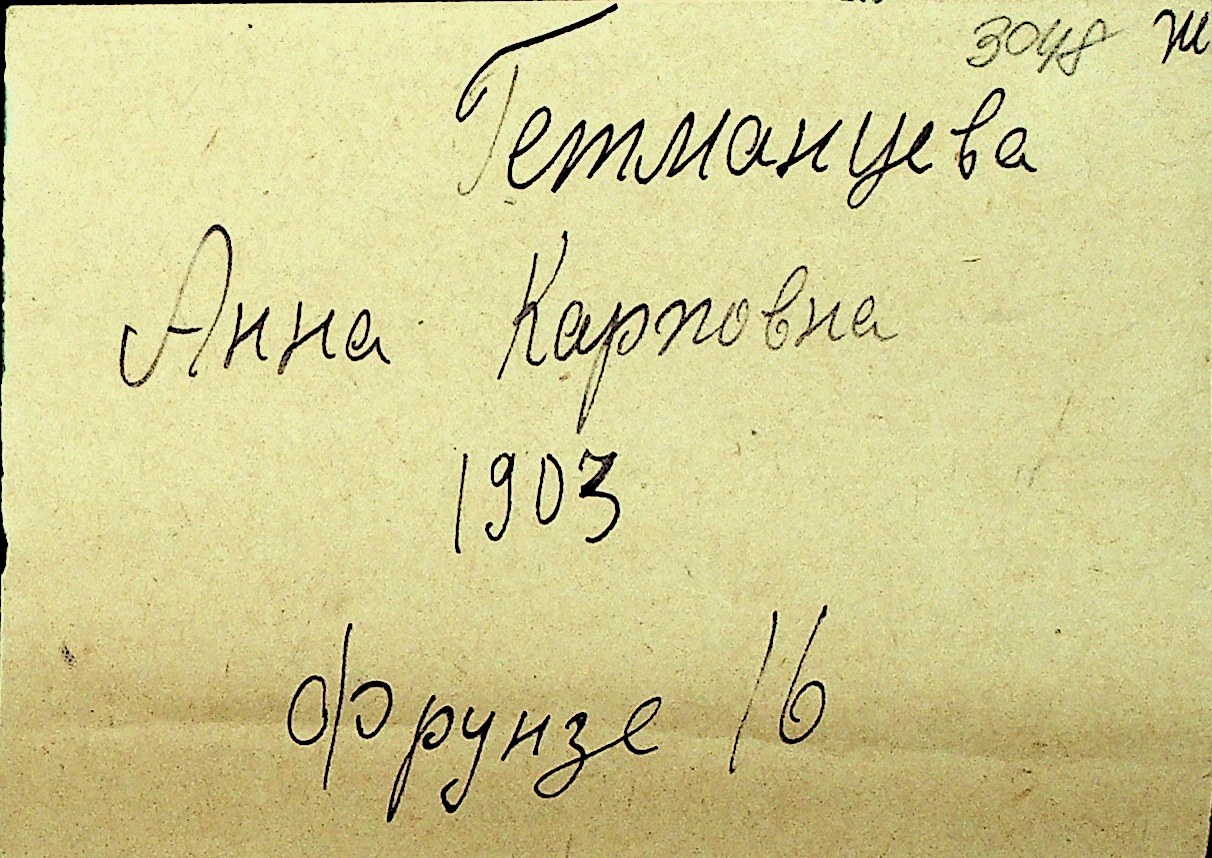 3048 ж
Гетманцева
Анна Карповна
1903
Фрунзе 16